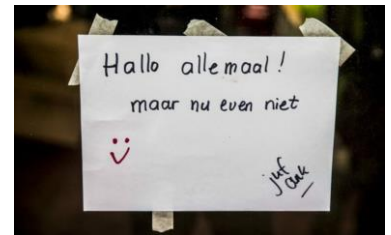 Hallo allemaal!
maar nu even niet
juf
Ank